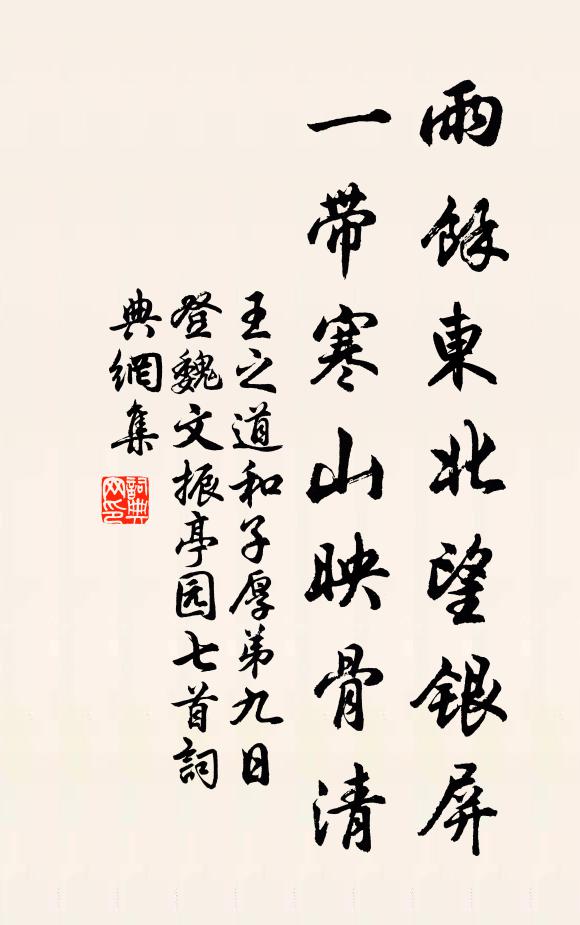 雨餘東北望銀屏
一带寒山映骨清
王之道和子厚弟九日
登魏文振亭园七首詞
典網集
詞典
网印